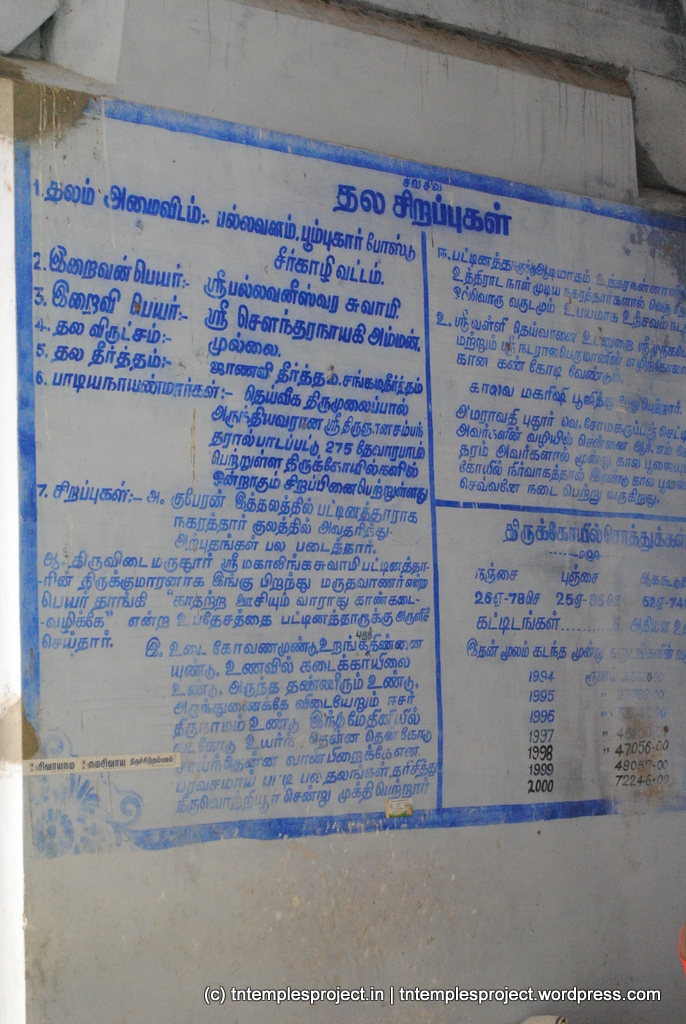 சிவ சிவ
தல சிறப்புகள்
1. தலம் அமைவிடம்:- பல்லவனம், பூம்புகார் போஸ்டு
சீர்காழி வட்டம்.
2. இறைவன் பெயர்:- ஸ்ரீ பல்லவனீஸ்வர சுவாமி.
3. இறைவி பெயர்:- ஸ்ரீ சௌந்தரநாயகி அம்மன்.
4. தல விருட்சம்:- முல்லை.
5. தல தீர்த்தம்:- ஜாணவி தீர்த்தம், சங்கமதீர்த்தம்
6. பாடியநாயண்மார்கள்:- தெய்வீக திருமுலைப்பால்
அருந்தியவரான ஸ்ரீ திருஞானசம்பந்
தரால் பாடப்பட்டு 275 தேவாரபாடல்
பெற்றுள்ள திருக்கோயில்களில்
ஒன்றாகும் சிறப்பினைபெற்றுள்ளது
7. சிறப்புகள்:- அ. குபேரன் இத்தலத்தில் பட்டினத்தாராக
நகரத்தார் குலத்தில் அவதரித்து
அற்புதங்கள் பல படைத்தார்.
ஆ. திருவிடைமருதூர் ஸ்ரீ மகாலிங்கசுவாமி பட்டினத்தா-
-ரின் திருக்குமாரனாக இங்கு பிறந்து மருதவாணர் என்ற
பெயர் தாங்கி "காதற்ற ஊசியும் வாராது காண்கடை-
-வழிக்கே" என்ற உபதேசத்தை பட்டினத்தாருக்கு அருளிச்
செய்தார்.
இ. உடை கோவணமுண்டு, உறங்க புறந்திண்ணை
யுண்டு, உணவில் கடைக்காயிலை
உண்டு, அருந்த தண்ணீரும் உண்டு,
அருந்துணைக்கே விடையேறும் ஈசர்
திருநாமம் உண்டு இந்த மேதினியில்
வடகோடு உயர்ந்தென்ன தென்கோடு
சாய்ந்தென்ன வான்பிறைக்கே என
பரவசமாய் பாடி பல தலங்கள் தரிசித்து
திருவொற்றியூர் சென்று முக்தி பெற்றார்
ஈ. பட்டினத்தாருக்கு ஆடிமாதம்
உத்திராட நாள் முடிய நகரத்தார்களால் வெகு
ஒவ்வொரு வருடமும் உபயமாக உற்சவம்
உ. ஸ்ரீ வள்ளி தெய்வானை உடனுறை ஸ்ரீ முருக
மற்றும் ஸ்ரீ நடராஜபெருமானின் எழிற்கோல
காண கண் கோடி வேண்டும்.
காலவ மகரிஷி பூஜித்து பேறு பெற்றார்.
அமராவதி புதூர் வெ. சோமசுருப்பஞ் செட்டி
அவர்களின் வழியில் சென்னை ஆர்.எம்.
தரம் அவர்களால் மூன்று கால பூஜையு
கோயில் நிர்வாகத்தால் இரண்டு கால பூஜை
செவ்வனே நடை பெற்று வருகிறது.
திருக்கோயில் சொத்துக்கள்
நஞ்சை புஞ்சை ஆககூடுதல்
26ஏ-78செ 25ஏ-96செ 52ஏ-74
கட்டிடங்கள்
இதன் மூலம் கடந்த மூன்று
1994 ரூபாய்
1995 "
1996 "
1997 "
1998 " 47056-00
1999 49059-00
2000 72246-00
சிவாயநம நமசிவாய திருச்சிற்றம்பலம்
(c) tntemplesproject.in | tntemplesproject.wordpress.com